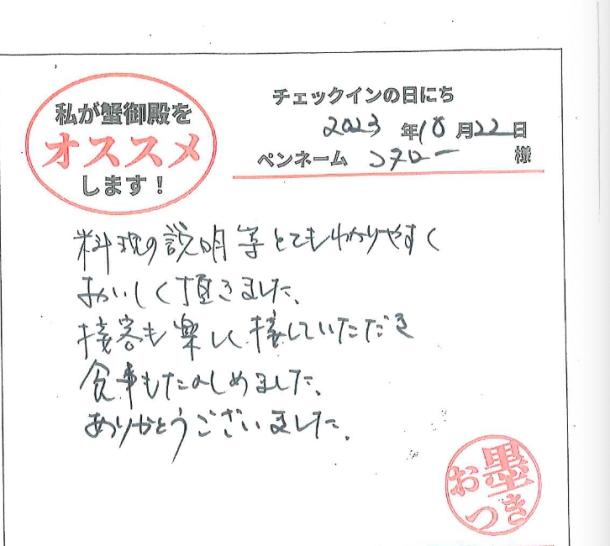 私が蟹御殿を
オススメ
します!
チェックインの日にち
2023年10月22日
ペンネーム コタロー 様
料理の説明等とてもわかりやすく
おいしく頂きました。
接客も楽しく接していただき
食事もたのしめました。
ありがとうございました。
お墨
つき